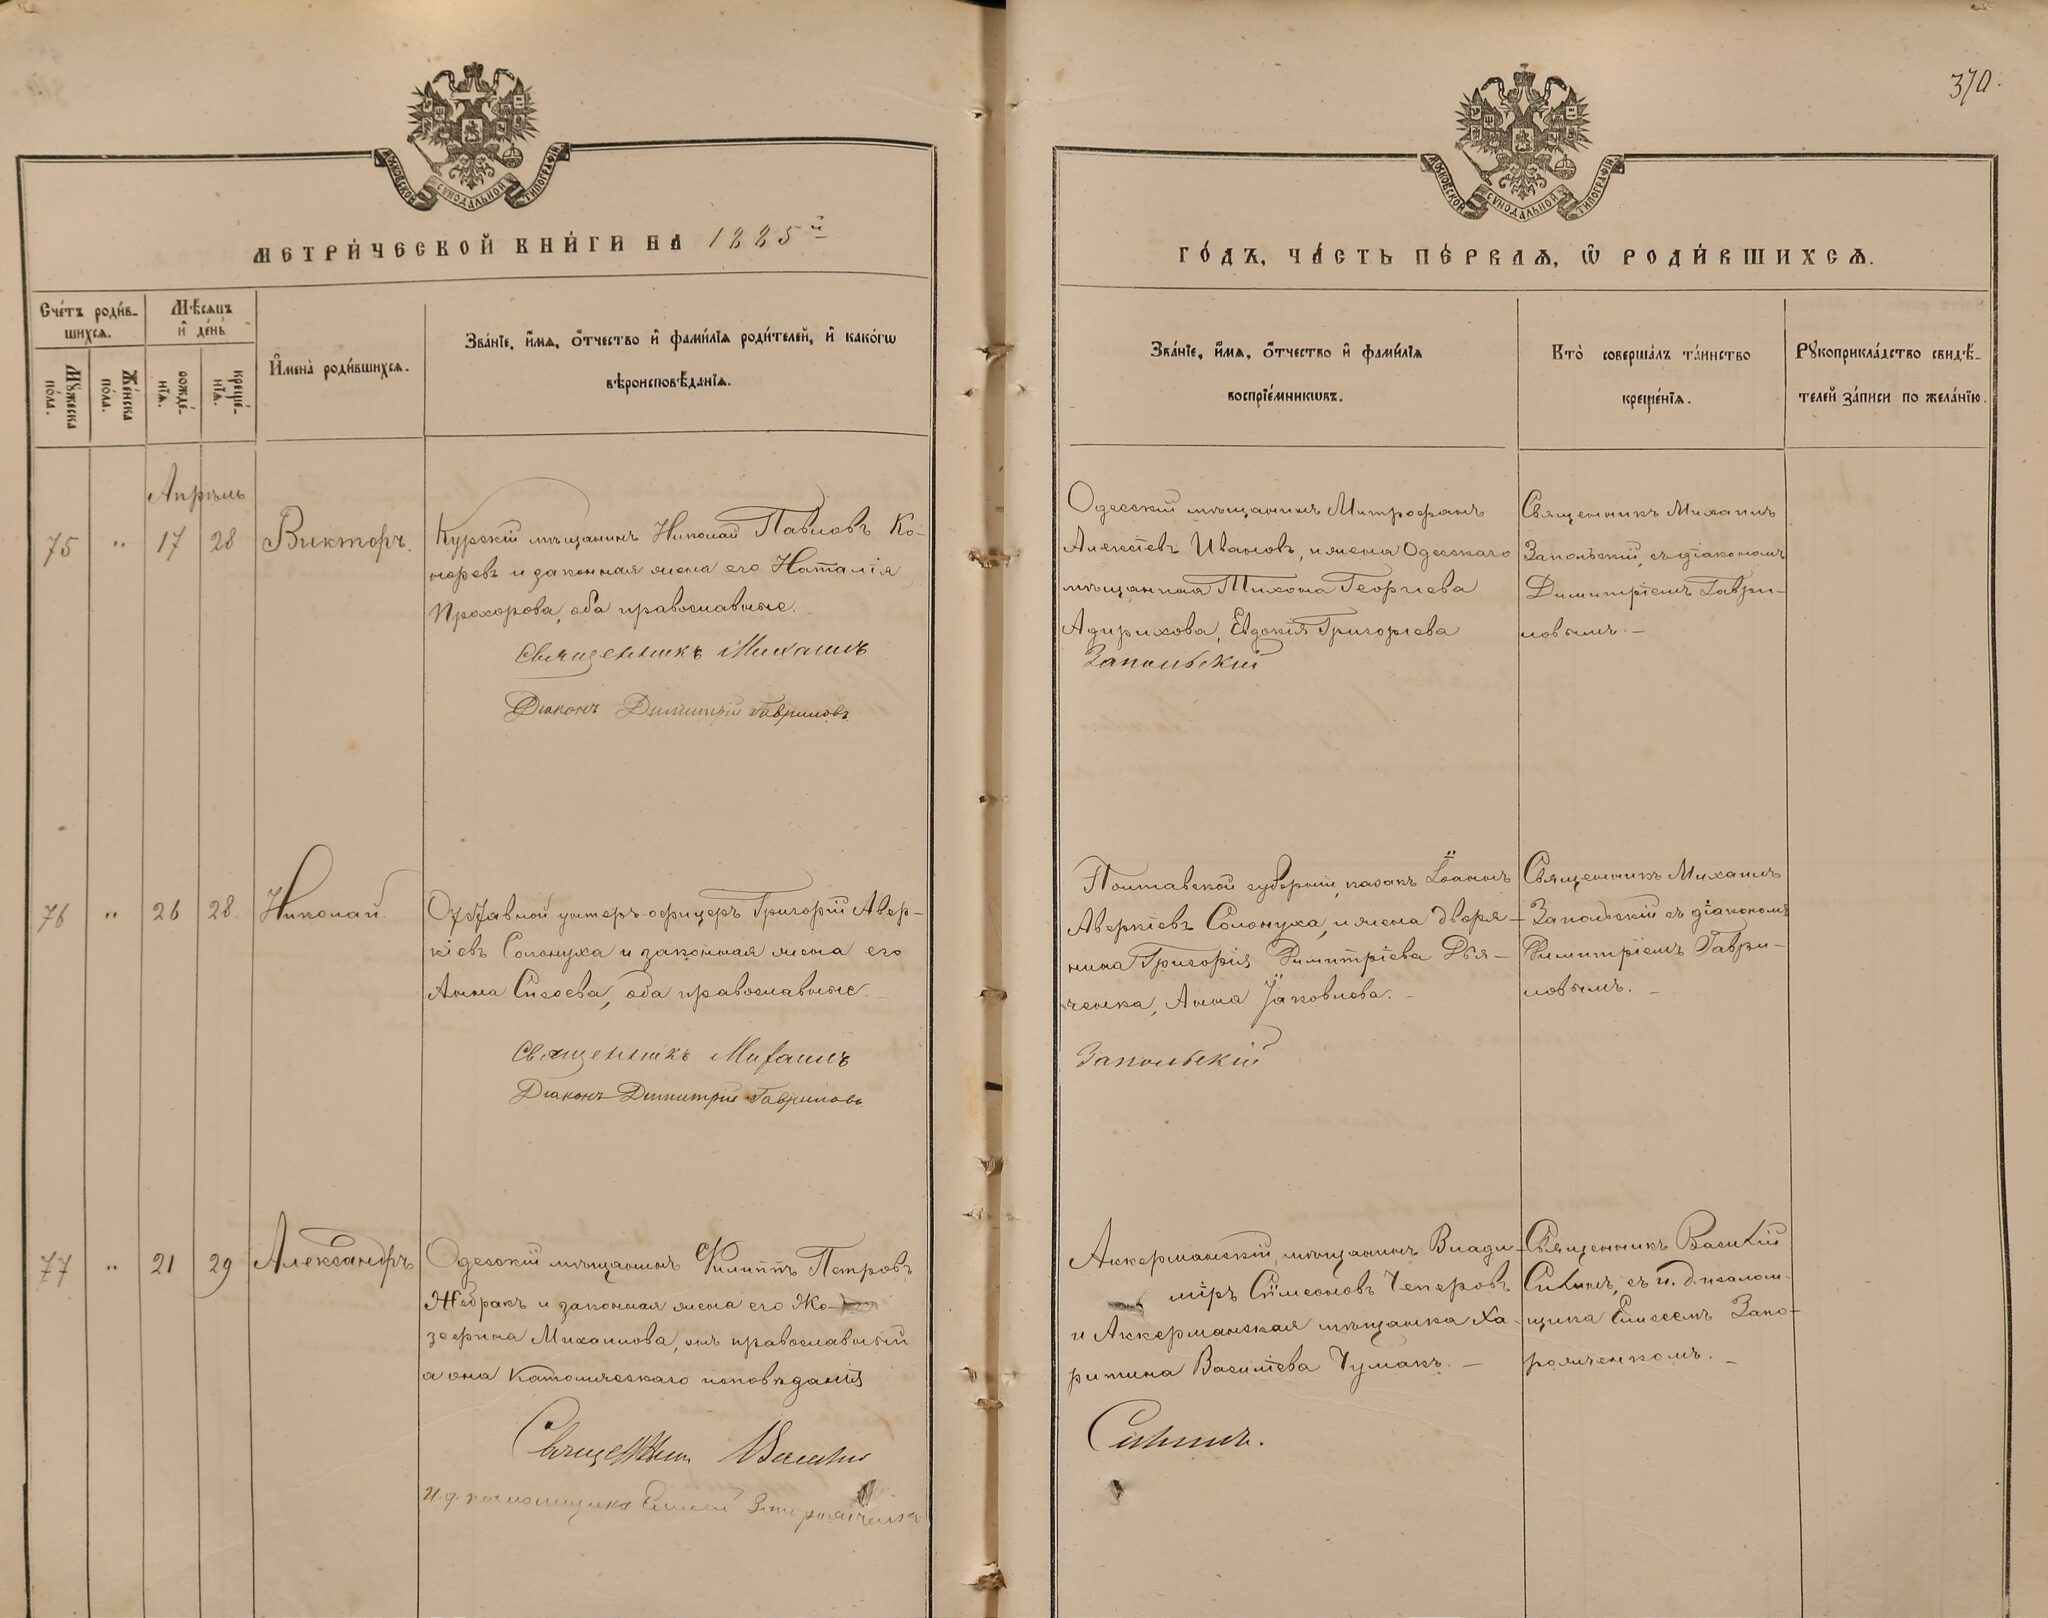 370.
МОСКОВСКОЙ СѴНОДАЛЬНОЙ ТИПОГРАФІИ
МОСКОВСКОЙ СѴНОДАЛЬНОЙ ТИПОГРАФІИ
МЕТРИ́ЧЕСКОЙ КНИ́ГИ НА 1885й
ГО́ДЪ, ЧА́СТЬ ПЕ́РВАѦ, Ѿ РОДИ́ВШИХСѦ.
Сче́тъ роди́в-
шихсѧ.
Мѣ́сѧцъ
и҆ де́нь
Мꙋ́жеска
по́ла.
Же́нска
по́ла.
рожде́-
нїѧ.
креще́-
нїѧ.
И҆мена̀ роди́вшихсѧ.
Зва́нїе, и҆́мѧ, ѻ҆́тчество и҆ фами́лїѧ роди́телей, и҆ како́гѡ
вѣроисповѣ́данїѧ.
Зва́нїе, и҆́мѧ, ѻ҆́тчество и҆ фами́лїѧ
воспрїе́мникѡвъ.
Кто̀ соверша́лъ та́инство
креще́нїѧ.
Рꙋкоприкла́дство свидѣ́-
телей за́писи по жела́нїю.
Апрѣль
75 " 17 28 Викторъ.
Курскій мѣщанинъ Николай Павловъ Ко-
норевъ и законная жена его Наталія
Прохорова, оба православные.
Священникъ Михаилъ
Діаконъ Димитрій Гавриловъ
Одесскій мѣщанинъ Митрофанъ
Алексіевъ Ивановъ, и жена Одесскаго
мѣщанина Тихона Георгіева
Адирихова, Евдокія Григоріева
Запольскій
Священникъ Михаилъ
Запольскій, съ діакономъ
Димитріемъ Гаври-
ловымъ. -
76 " 26 28. Николай.
Отставной унтеръ-офицеръ Григорій Авер-
кіевъ Солонуха и законная жена его
Анна Сисоева, оба православные. -
Священникъ Михаилъ
Діаконъ Димитрій Гавриловъ
Полтавской губерніи, казакъ Іоаннъ
Аверкіевъ Солонуха, и жена дворя-
нина Григорія Димитріева Дья-
ченка, Анна Іаковлева. -
Запольскій
Священникъ Михаилъ
Запольскій съ діакономъ
Димитріемъ Гаври-
ловымъ. -
77 " 21 29 Александръ
Одесскій мѣщанинъ Филиппъ Петровъ
Жебракъ и законная жена его Жо-
зефина Михаилова, онъ православный
а она Католическаго исповѣданія
Священникъ Василій
И. д. псаломщика Елисей Запорожченко
Аккерманскій мѣщанинъ Влади-
міръ Сѵмеоновъ Чеперовъ
и Аккерманская мѣщанка Ха-
ритина Василіева Чумакъ. -
Силинъ.
Священникъ Василій
Силинъ, съ и. д. псалом-
щика Елисеемъ Запо-
рожченкомъ. -